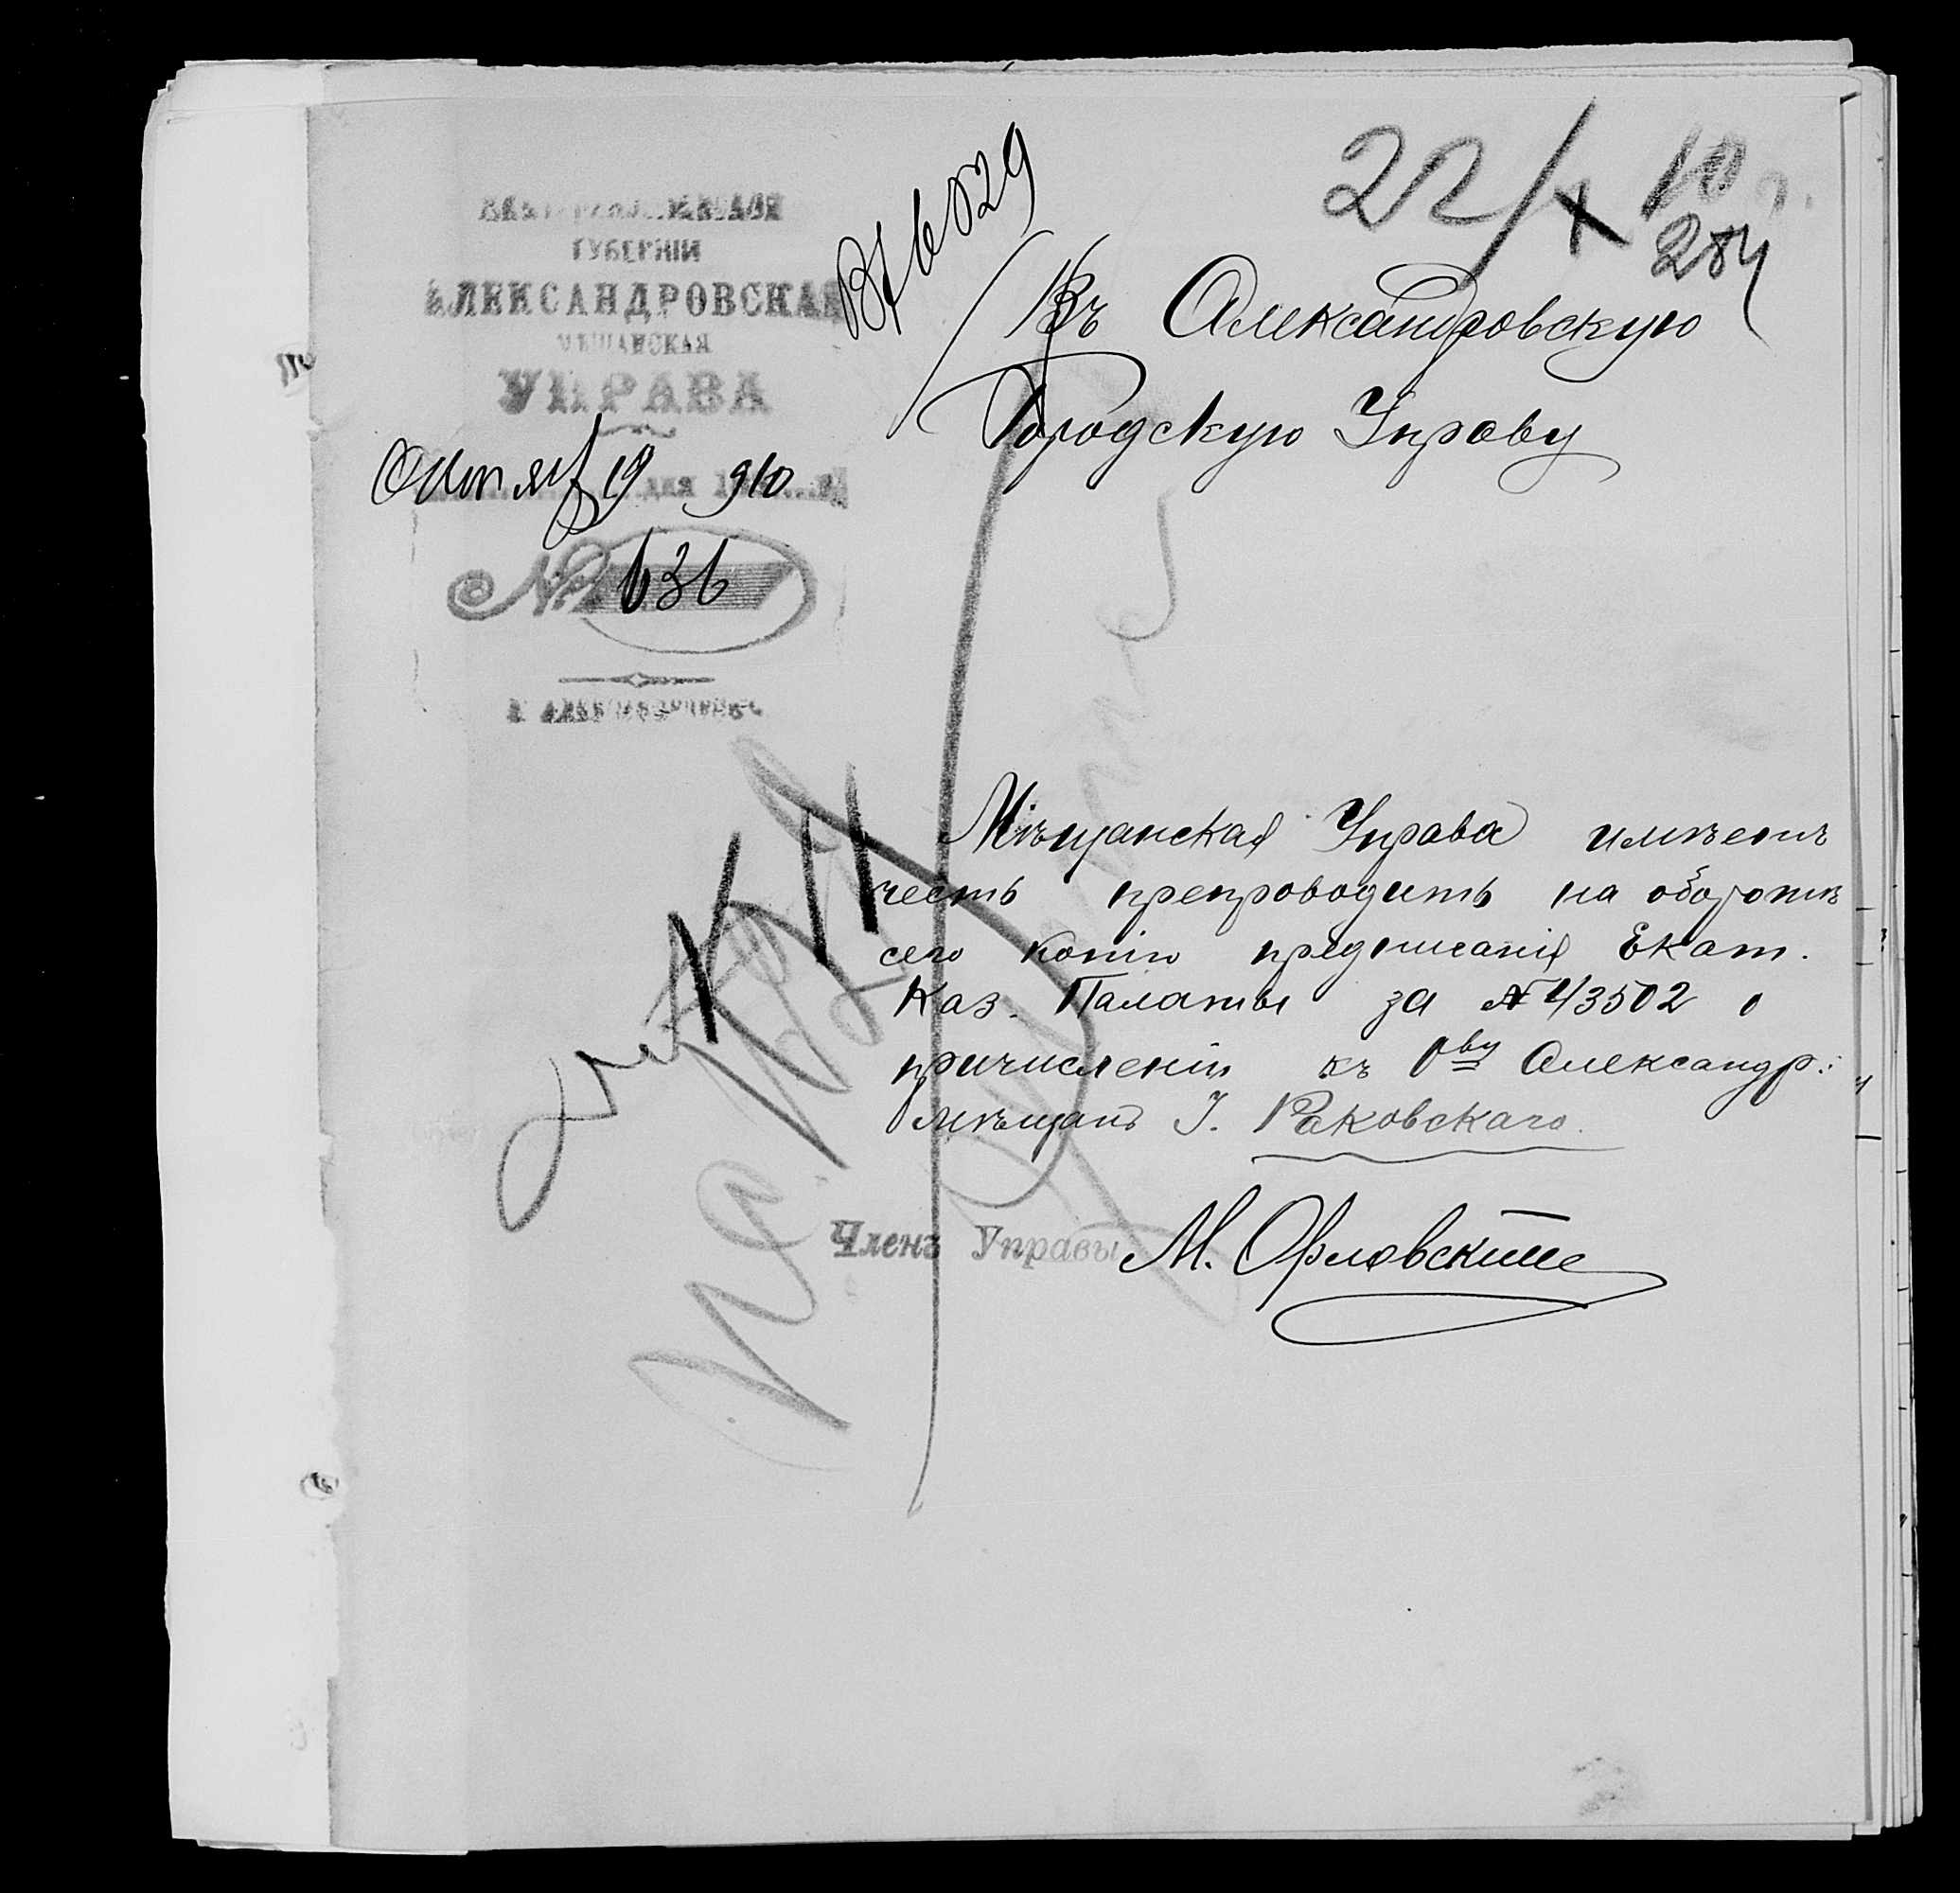 22/X 10 г.
284
Вх 6029
ЕКАТЕРИНОСЛАВСКОЙ
ГУБЕРНІИ
АЛЕКСАНДРОВСКАЯ
МѢЩАНСКАЯ
УПРАВА
Октяб 19 дня 1910
№ 636
Г. АЛЕКСАНДРОВСКЪ
Въ Александровскую
Городскую Управу
Мѣщанская Управа имѣетъ
честь препроводить на оборотѣ
сего копію предписанія Екат.
Каз. Палаты за № 43502 о
причисленіи къ О–ву Александр:
мѣщанъ І. Раковскаго.
Членъ Управы М. Орловскій